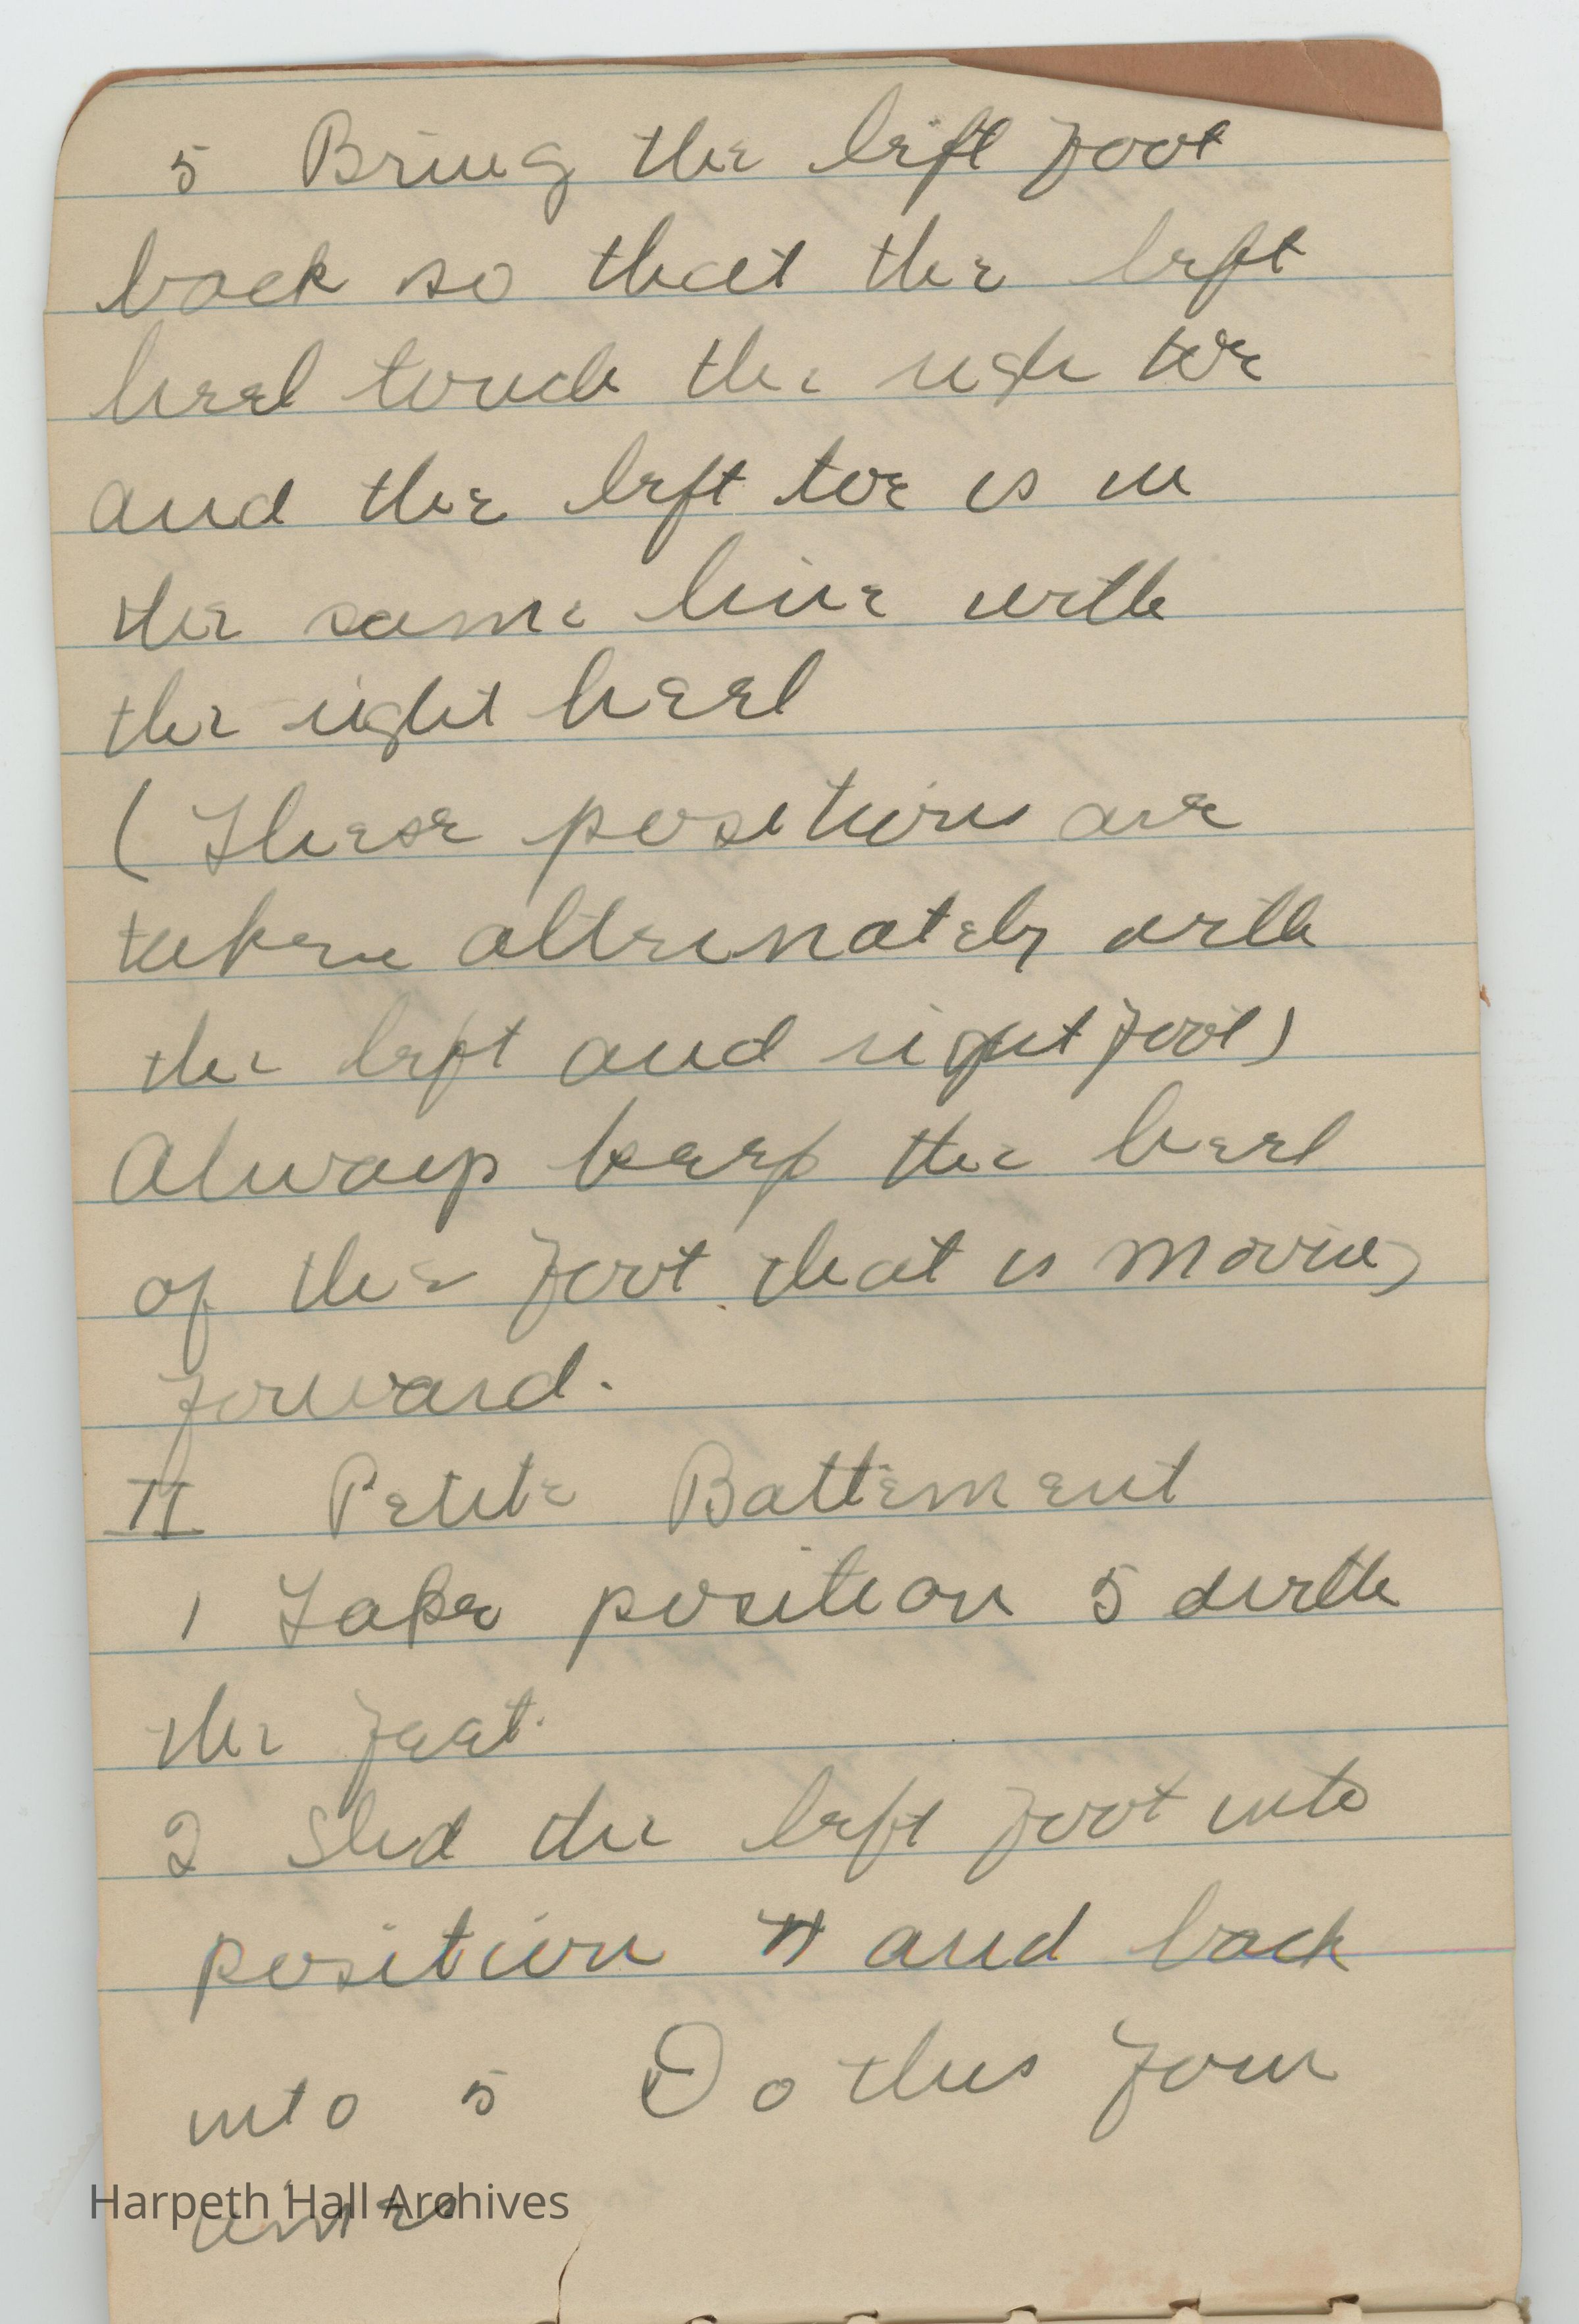 5 Bring the left foot
back so that the left
heel touch the righ toe
and the left toe is in
the same line with
the right heel
(These positions are
taken alternately with
the left and right foot)
Always keep the heel
of the foot that is moving
forward.
II Petite Battement
1 Take position 5 with
the feet.
2 Slid the left foot into
position 4 and back
into 5 Do this four
times
Harpeth Hall Archives